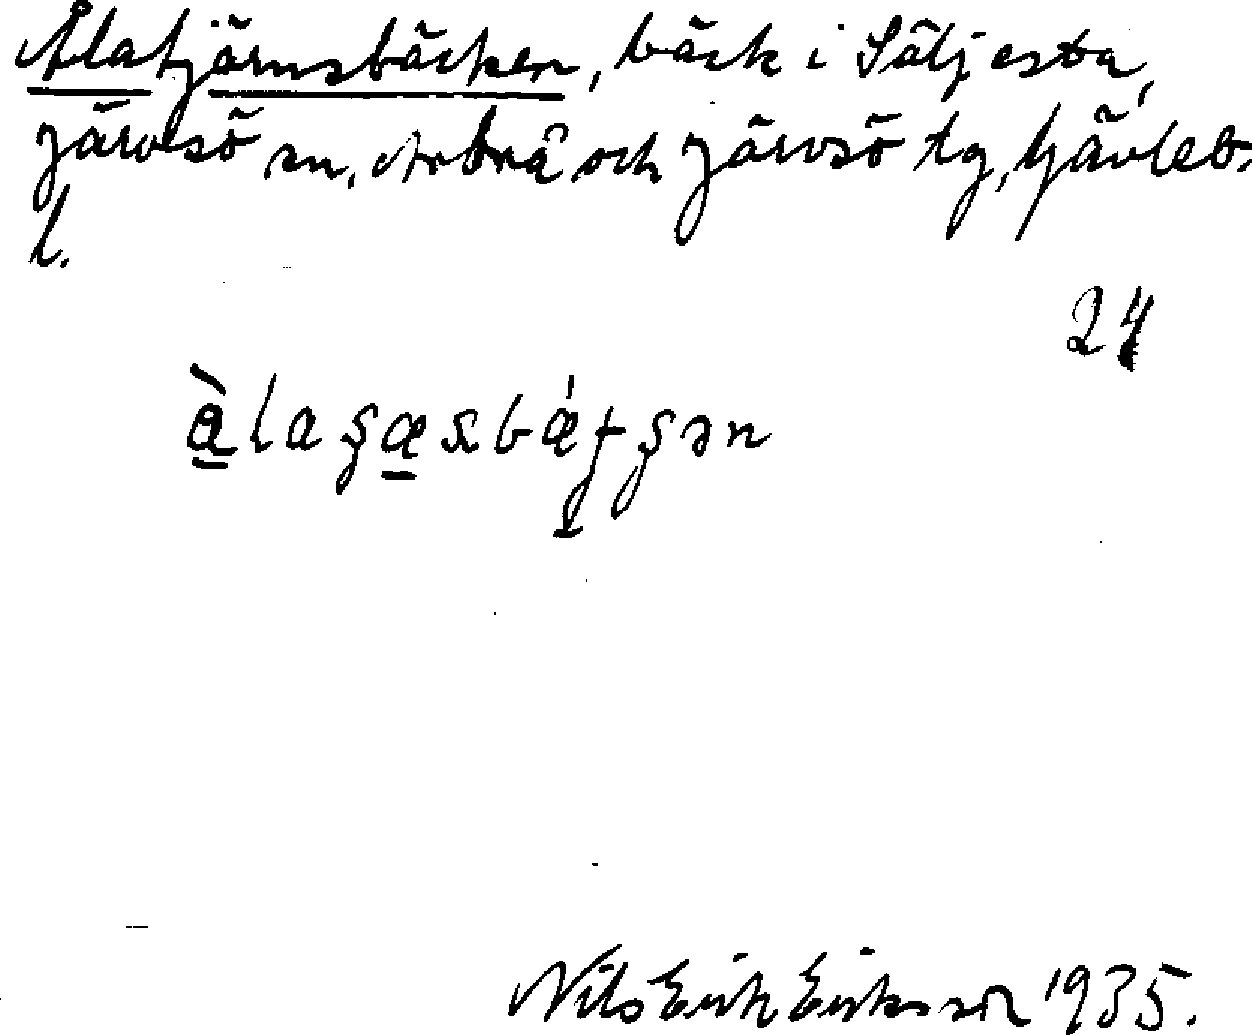 Ålatjärnsbäcken, bäck i Säljesta,
Järvsö sn, Arbrå och Järvsö tg, Gävleb.
l.
24
Nils Erik Eriksson 1935.